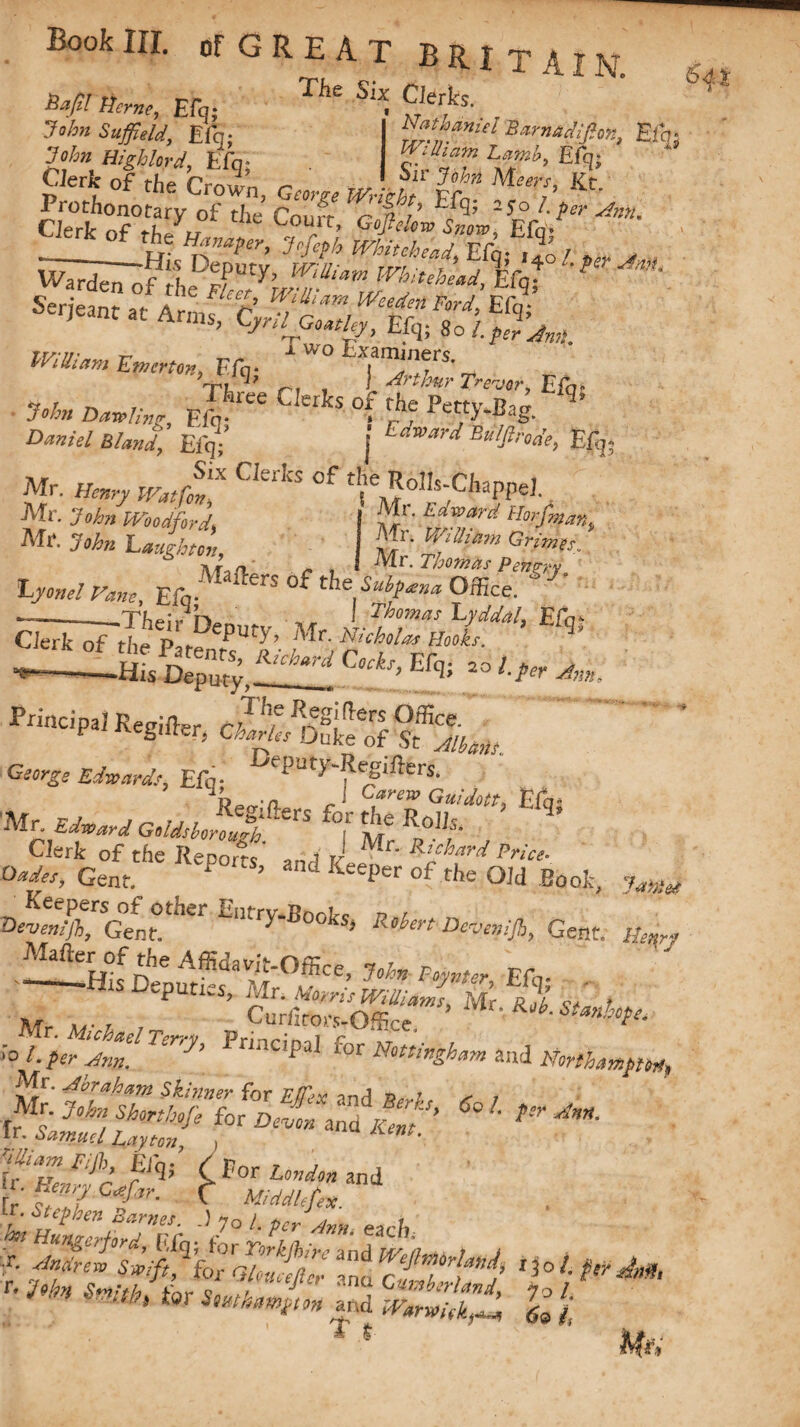 Book III. of GREAT BRITAIN. 641
The Six Clerks.
Basil Herne, Esq;
John Suffield, Esq;
John Highlord, Esq;
Nathaniel Barnadiston, Esq;
William Lamb, Esq;
Sir John Meers, Kt.
Clerk of the Crown, George Wright, Esq; 250 l. per Ann.
Prothonotary of the Court, Gostelow Snow, Esq;
Clerk of the Hanaper, Joseph Whitehead, Esq; 140 l. per Ann.
———His Deputy, William Whitehead, Esq;
Warden of the Fleet, William Weeden Ford, Esq;
Serjeant at Arms, Cyril Goatley, Esq; 80 l. per Ann.
Two Examiners.
William Emerton, Esq;
Arthur Trevor, Esq;
Three Clerks of the Petty-Bag.
John Dawling, Esq;
Daniel Bland, Esq;
Edward Bulstrode, Esq;
Six Clerks of the Rolls-Chappel.
Mr. Henry Watson,
Mr. John Woodford,
Mr. John Laughton,
Mr. Edward Horsman,
Mr. William Grimes.
Mr. Thomas Pengry.
Masters of the Subpæna Office.
Lyonel Vane, Esq;
Thomas Lyddal, Esq;
———Their Deputy, Mr. Nicholas Hooks.
Clerk of the Patents, Richard Cocks, Esq; 20 l. per Ann.
———His Deputy,———
The Registers Office.
Principal Register, Charles Duke of St Albans.
Deputy-Registers.
George Edwards, Esq;
Carew Guidott, Esq;
Registers for the Rolls.
Mr. Edward Goldsborough.
Mr. Richard Price.
Clerk of the Reports, and Keeper of the Old Book, James
Oades, Gent.
Keepers of other Entry-Books, Robert Devenish, Gent. Henry
Devenish, Gent.
Master of the Affidavit-Office, John Poynter, Esq;
———His Deputies, Mr. Morris Williams, Mr. Rob. Stanhope.
Cursitors-Office.
Mr. Michael Terry, Principal for Nottingham and Northampton,
50 l. per Ann.
Mr. Abraham Skinner for Essex and Berks, 60 l. per Ann.
Mr. John Shorthose for Devon and Kent.
Mr. Samuel Layton,
William Fish, Esq;
Mr. Henry Cæsar.
Mr. Stephen Barnes.
For London and
Middlesex.
70 l. per Ann. each.
Hungerford, Esq; for Yorkshire and Westmorland, 130 l. per Ann.
r. Andrew Swift, for Gloucester and Cumberland, 70 l.
r. John Smith, for Southampton and Warwick,— 60 l.
T t
Mr.